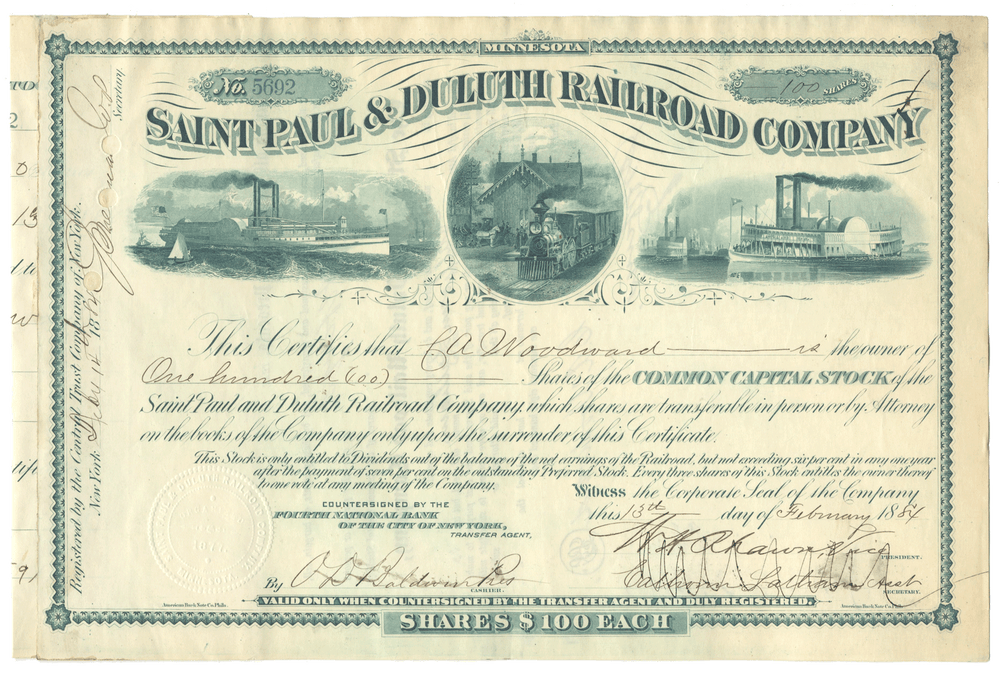 MINNESOTA
No. 5692
100 SHARES
SAINT PAUL & DULUTH RAILROAD COMPANY
This Certifies that C A Woodward is the owner of
One hundred (100) Shares of the COMMON CAPITAL STOCK of the
Saint Paul and Duluth Railroad Company, which shares are transferable in person or by Attorney
on the books of the Company only upon the surrender of this Certificate.
This Stock is only entitled to Dividends out of the balance of the net earnings of the Railroad, but not exceeding six per cent in any one year
after the payment of seven per cent on the outstanding Preferred Stock. Every three shares of this Stock entitles the owner thereof
to one vote at any meeting of the Company.
Witness the Corporate Seal of the Company
this 13th day of February 1884
COUNTERSIGNED BY THE
FOURTH NATIONAL BANK
OF THE CITY OF NEW YORK,
TRANSFER AGENT,
By O D Baldwin Pres
CASHIER.
Vice PRESIDENT.
Asst SECRETARY.
American Bank Note Co. Phila.
VALID ONLY WHEN COUNTERSIGNED BY THE TRANSFER AGENT AND DULY REGISTERED.
American Bank Note Co. Phila.
SHARES $100 EACH
Registered by the Central Trust Company of New York.
New York 14 188
Secretary.